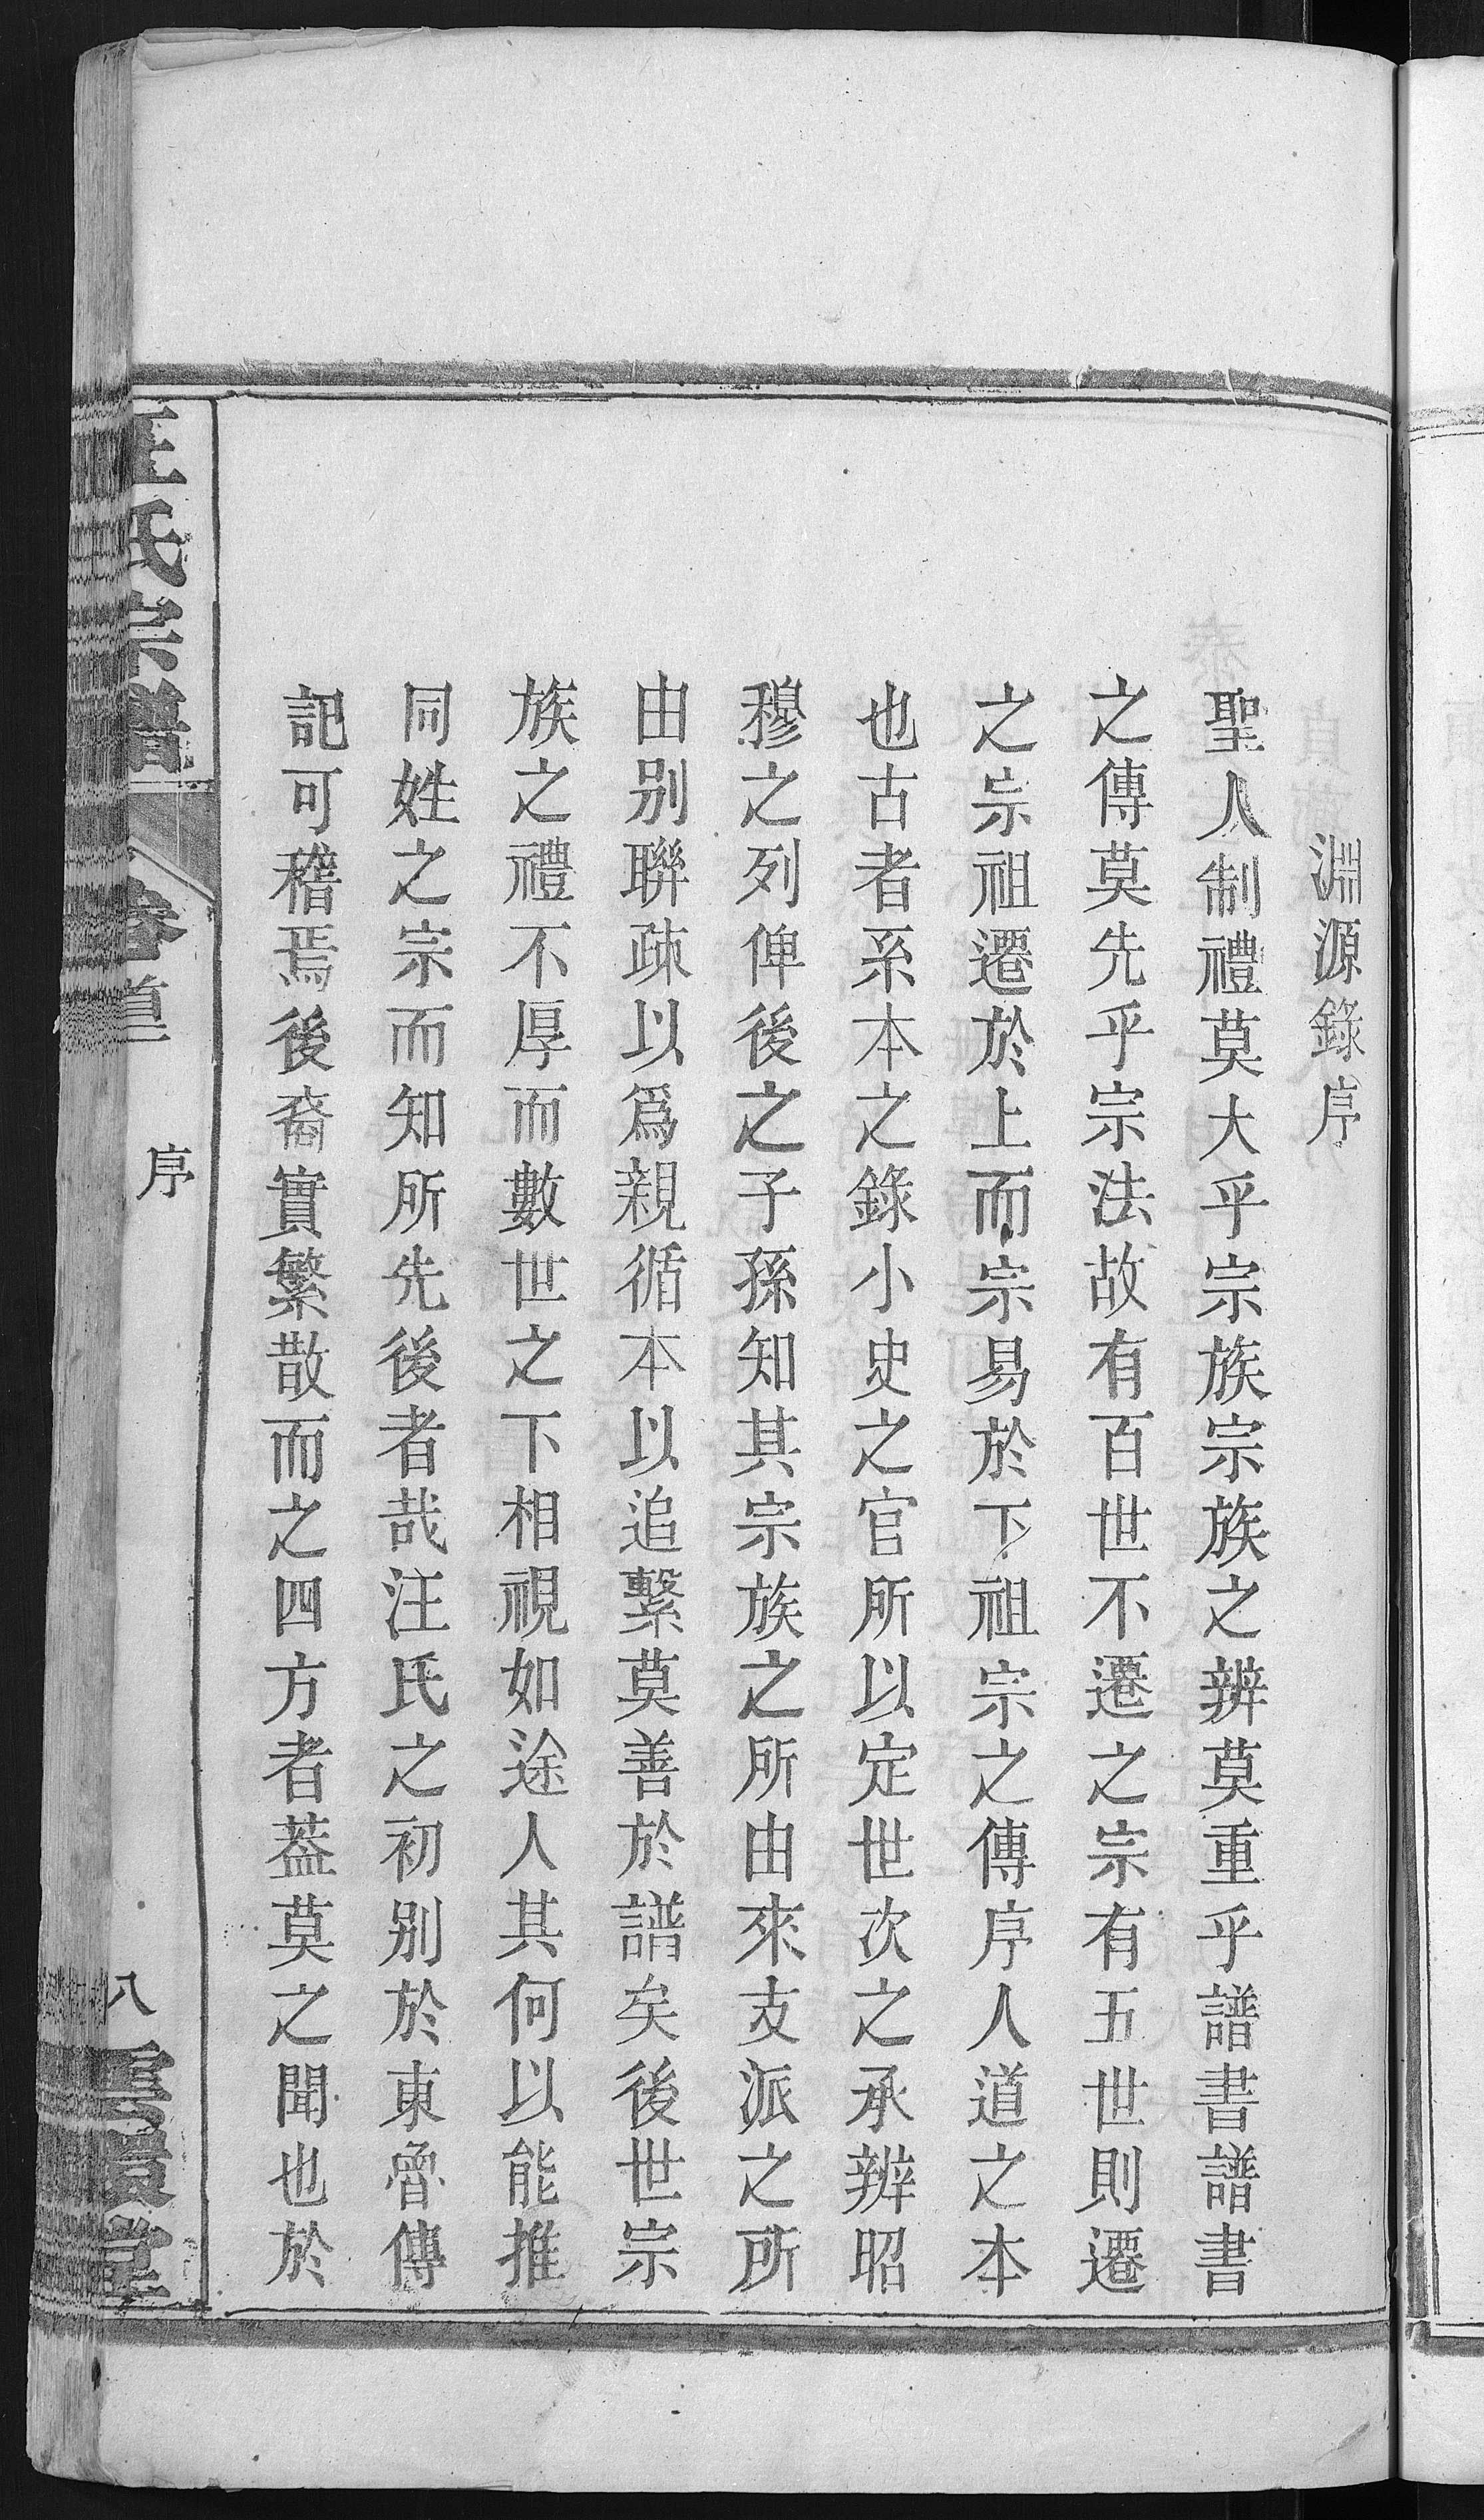 淵源錄序
聖人制禮莫大乎宗族宗族之辨莫重乎譜書譜書
之傳莫先乎宗法故有百世不遷之宗有五世則遷
之宗祖遷於上而宗易於下祖宗之傳序人道之本
也古者系本之錄小史之官所以定世次之承辨昭
穆之列俾後之子孫知其宗族之所由來支派之所
由别聯疎以爲親循本以追繫莫善於譜矣後世宗
族之禮不厚而數世之下相視如途人其何以能推
同姓之宗而知所先後者哉汪氏之初别於東魯傳
記可稽焉後裔實繁散而之四方者葢莫之聞也於
汪氏宗譜
卷首
序
八
堂